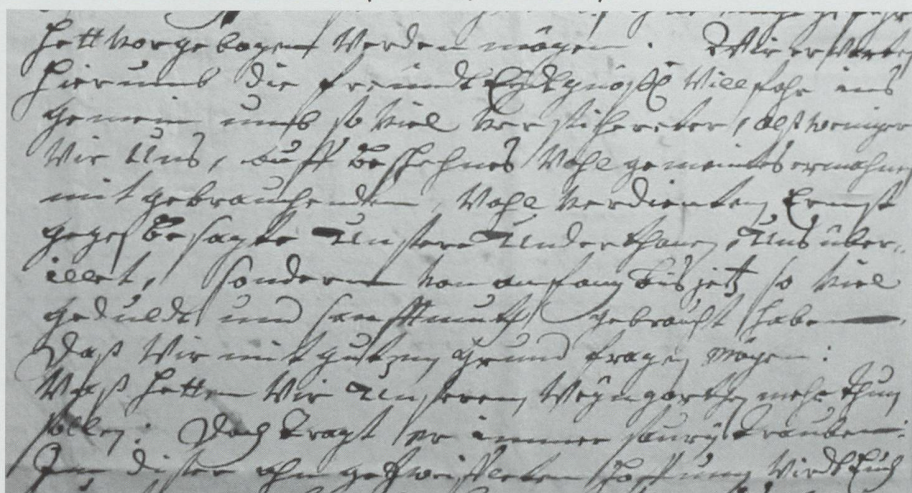 hett vorgebogen werden mögen. Wir erwarten
hierumb die freündt Eydtgnößl. Willfahr ins
gemein umb so viel versicherter, alß weniger
Wir Uns, auff beschehnes Wohl gemeintes ermahnen
mit gebrauchendem, Wohl verdienten Ernst
gegen besagte Unsere Underthanen, Uns über-
illet, sondern von anfang bis jetz so viel
gedulds und sanfftmuth gebraucht haben
Daß Wir mit gutem grund fragen mögen:
Waß hetten Wir Unserem Weyngarthen mehr thun
sollen: Doch tragt er immer saure Trauben:
In diser ohngezweiffleten Hoffnung Wirdt Euch